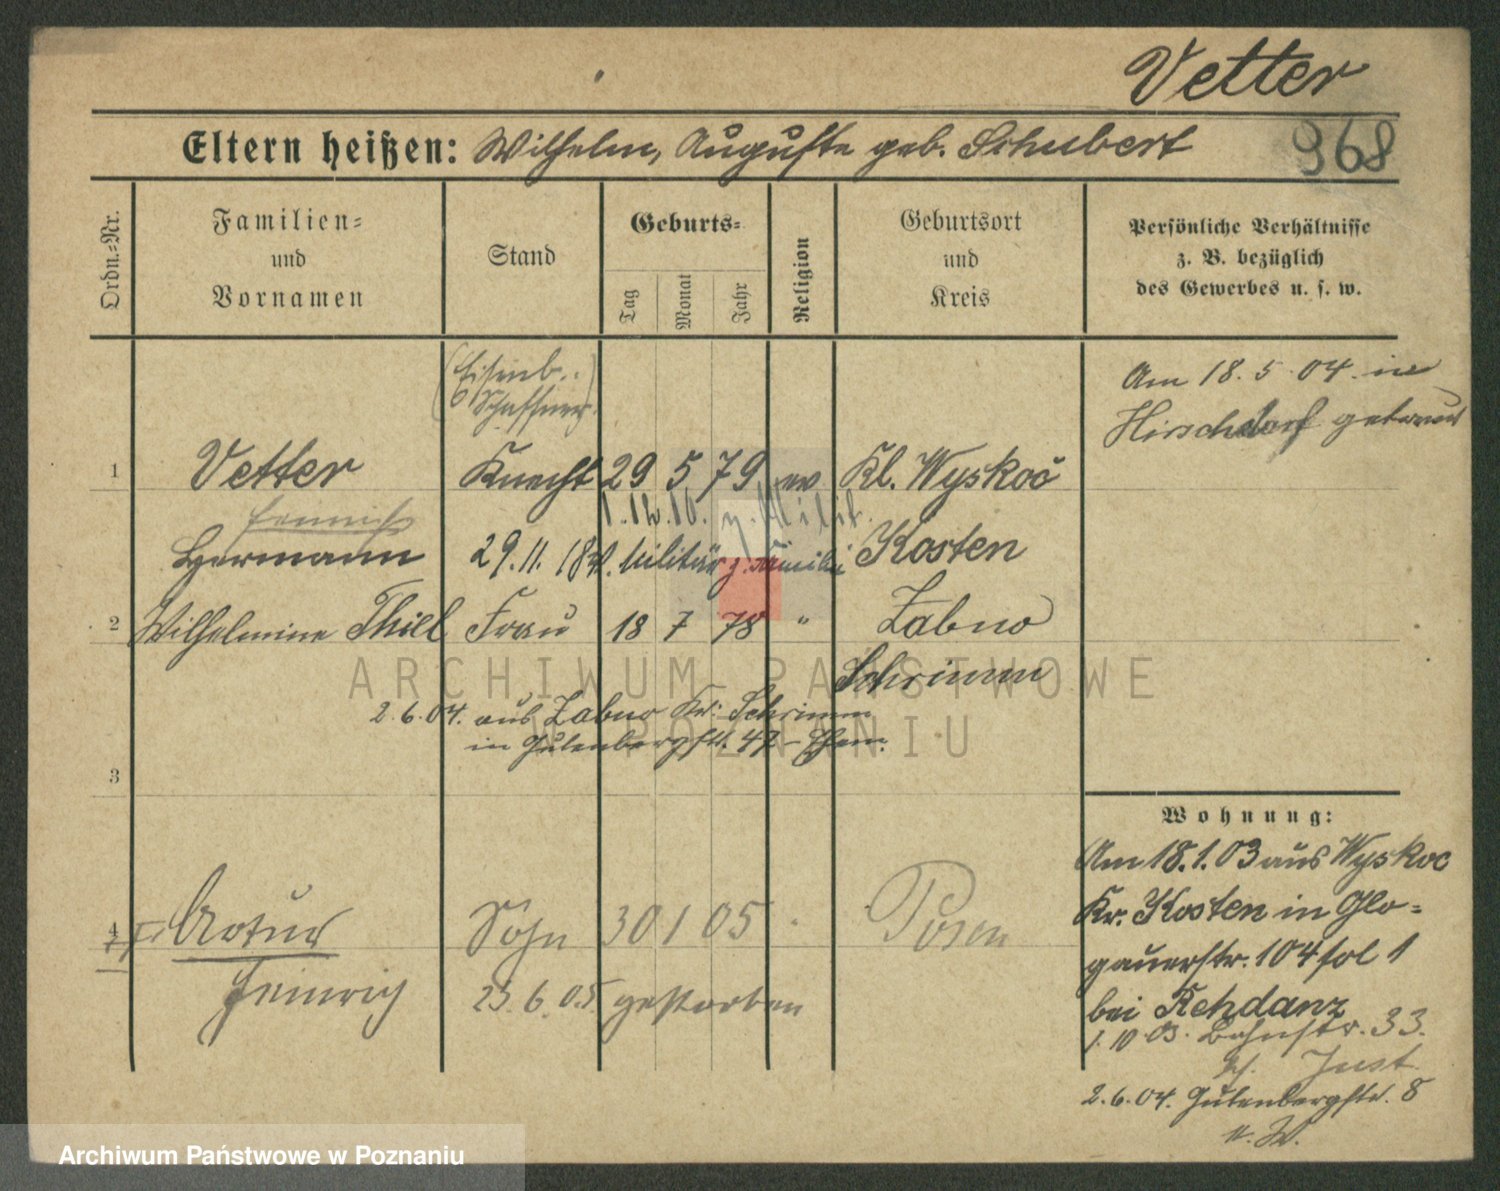 Vetter
Eltern heißen: Wilhelm, Auguste geb. Schubert
968
Ordn.-Nr.
Familien-
und
Vornamen
Stand
Geburts-
Tag
Monat
Jahr
Religion
Geburtsort
und
Kreis
Persönliche Verhältnisse
z. B. bezüglich
des Gewerbes u. s. w.
(Eisenb..
Schaffner)
Am 18. 5. 04. in
Hirschdorf getraut
1 Vetter Knecht 29 5 79 ev Kl. Wyskoć
1.12.10. z. Milit.
Hermann 29. 11. Militär z. Familie Kosten
2 Wilhelmine Thiel Frau 18 7 78 " Zabno
Schrimm
2. 6. 04. aus Zabno Kr. Schrimm
in Gutenbergstr. 47 - Ehem.
3
4 Artur Sohn 30 1 05 Posen
Heinrich 23. 6. 05 gestorben
Wohnung:
Am 18. 1. 03 aus Wyskoc
Kr. Kosten in Glo-
gauerstr. 104 fol 1
bei Rehdanz
1. 10 03. Bahnstr. 33.
Just
2. 6. 04. Gutenbergstr. 8
n. W.
ARCHIWUM PAŃSTWOWE
W POZNANIU
Archiwum Państwowe w Poznaniu